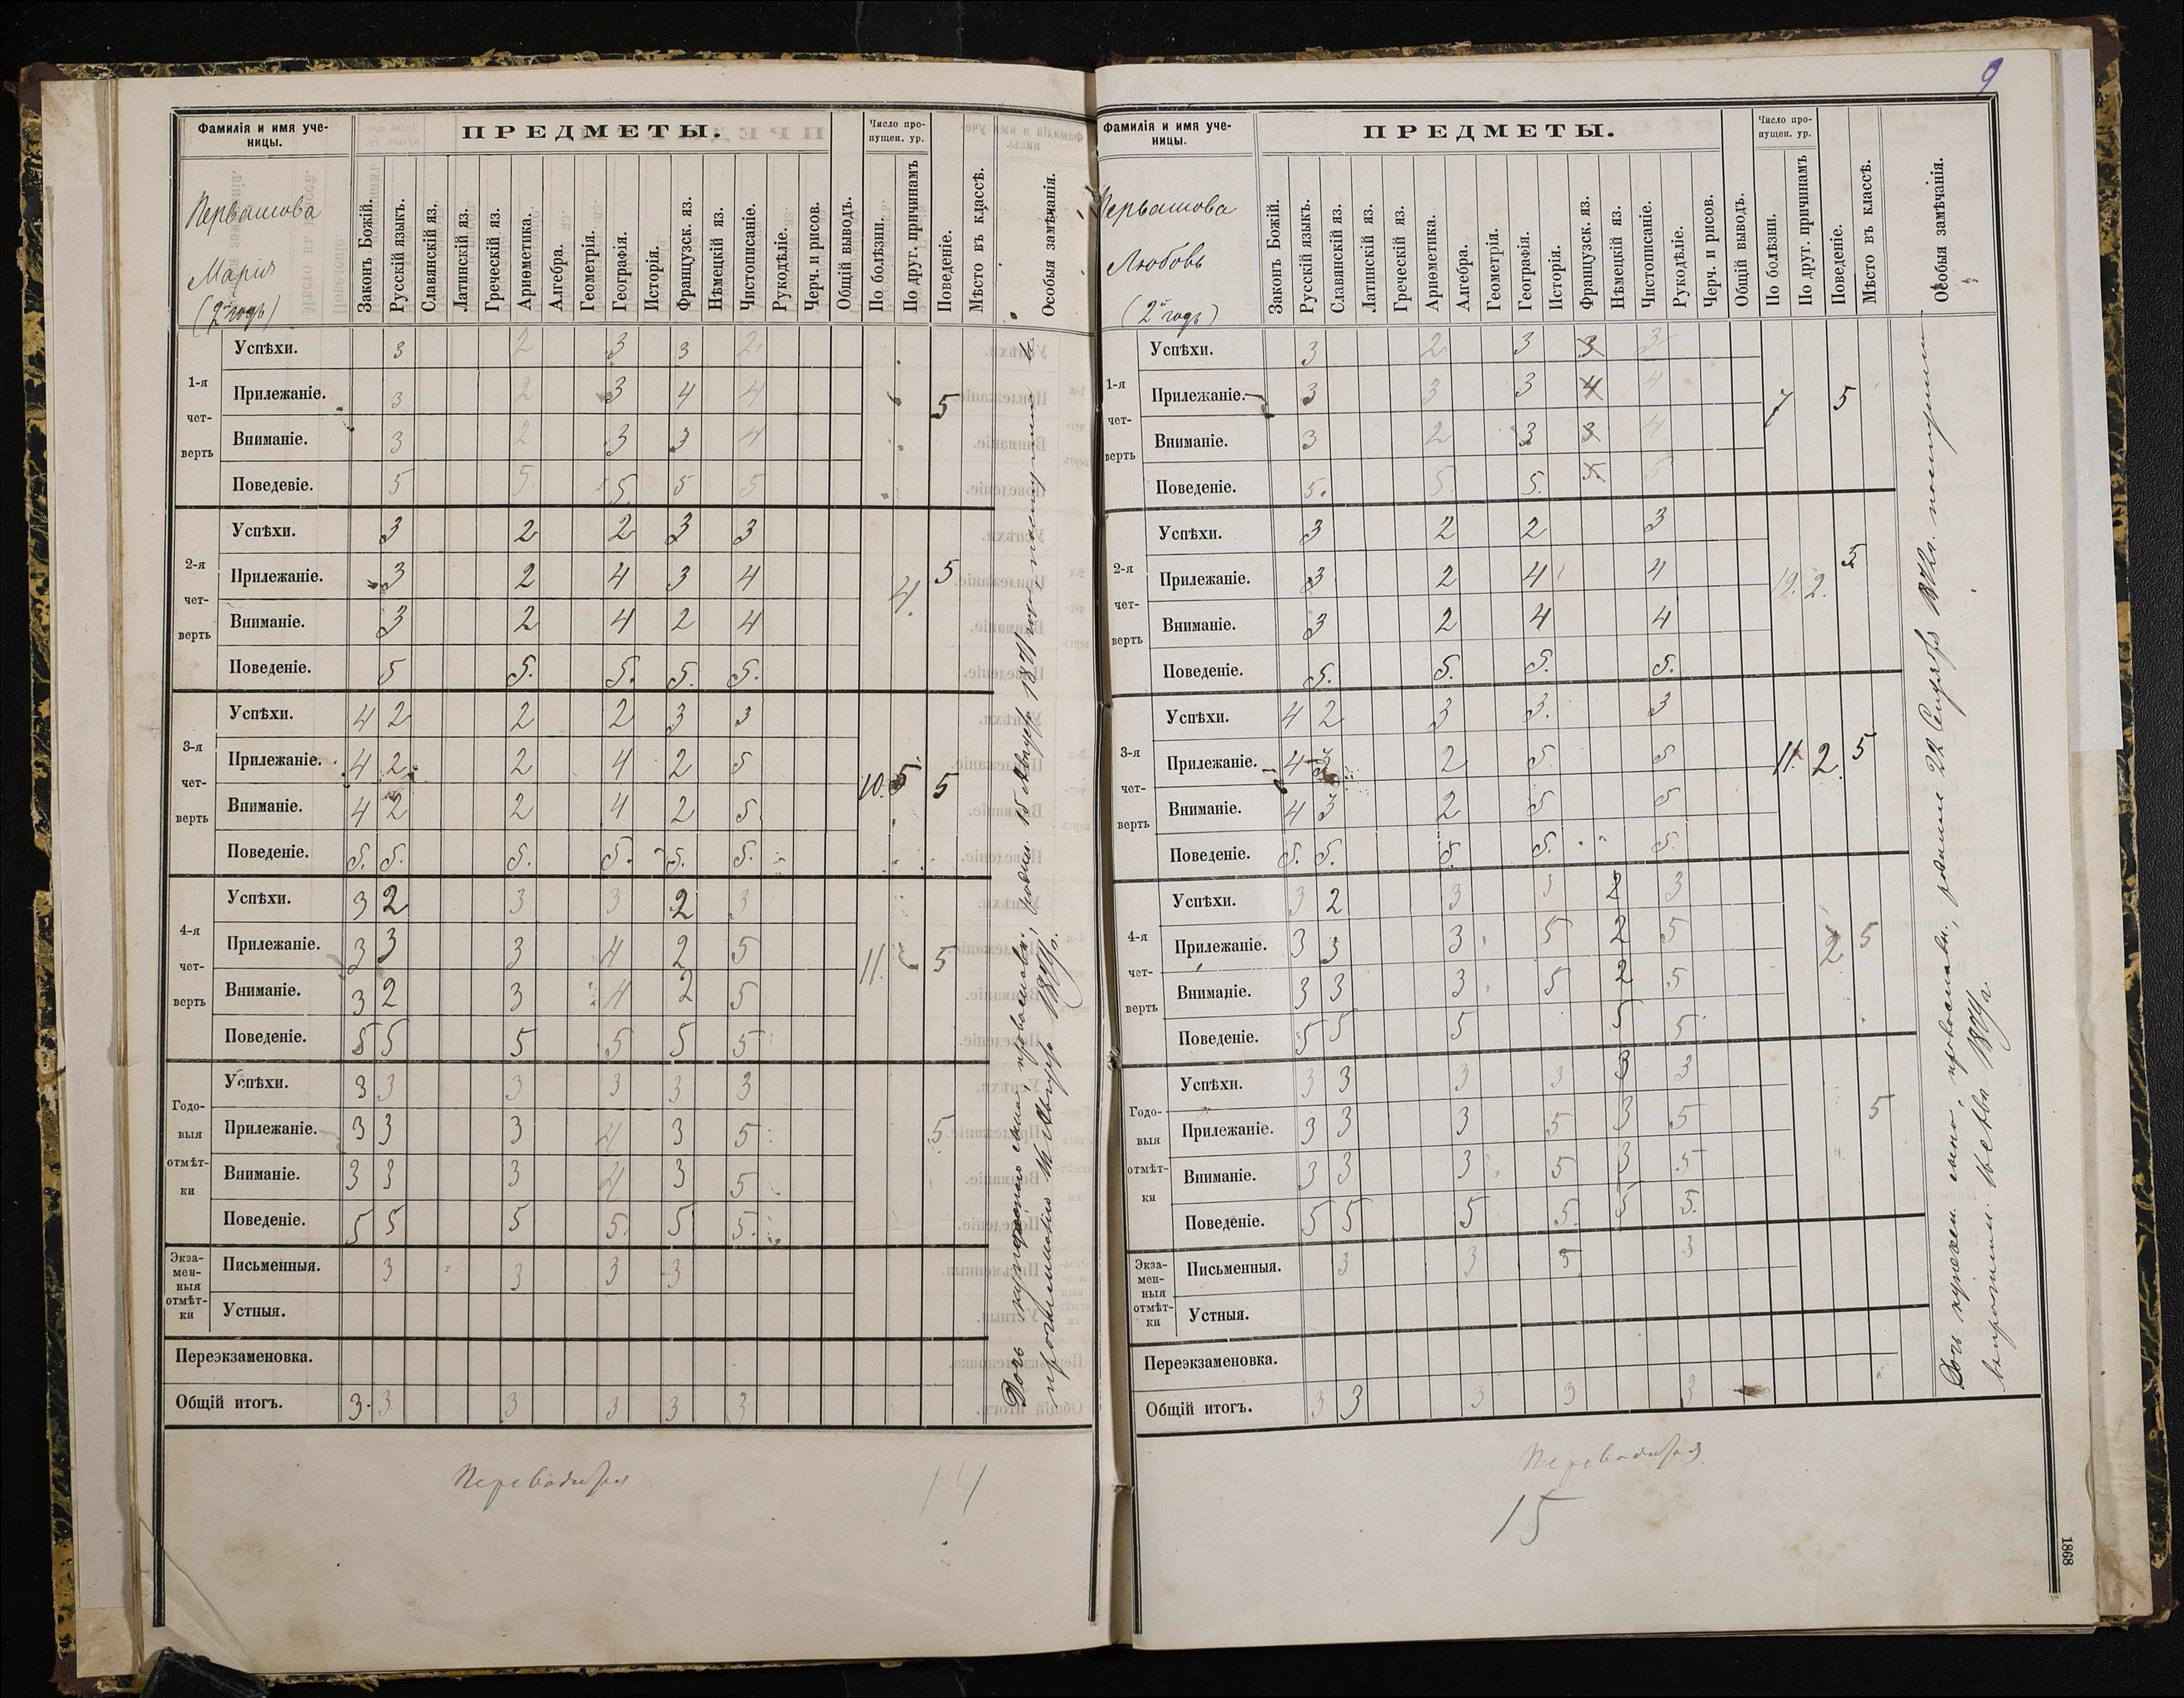 9
Фамилія и имя уче-
ницы.
ПРЕДМЕТЫ.
Число про-
пущен. ур.
Первашова
Марія
(2й годъ)
Законъ Божій.
Русскій языкъ.
Славянскій яз.
Латинскій яз.
Греческій яз.
Ариѳметика.
Алгебра.
Геометрія.
Географія.
Исторія.
Французск. яз.
Нѣмецкій яз.
Чистописаніе.
Рукодѣліе.
Черч. и рисов.
Общій выводъ.
По болѣзни.
По друг. причинамъ
Поведеніе.
Мѣсто въ классѣ.
Особыя замѣчанія.
1-я
чет-
верть
Успѣхи. 3 2 3 3 2
Прилежаніе. 3 2 3 4 4 5
Вниманіе. 3 2 3 3 4
Поведевіе. 5 5 5 5 5
2-я
чет-
верть
Успѣхи. 3 2 2 3 3
Прилежаніе. 3 2 4 3 4 4. 5
Вниманіе. 3 2 4 2 4
Поведеніе. 5 5. 5. 5. 5.
3-я
чет-
верть
Успѣхи. 4 2 2 2 3 3
Прилежаніе. 4 2 2 4 2 5 10. 5 5
Вниманіе. 4 2 2 4 2 5
Поведеніе. 5. 5. 5. 5. 5. 5.
4-я
чет-
верть
Успѣхи. 3 2 3 3 2 3
Прилежаніе. 3 3 3 4 2 5 11. 5
Вниманіе. 3 2 3 4 2 5
Поведеніе. 5 5 5 5 5 5
Годо-
выя
отмѣт-
ки
Успѣхи. 3 3 3 3 3 3
Прилежаніе. 3 3 3 4 3 5 5
Вниманіе. 3 3 3 4 3 5
Поведеніе. 5 5 5 5. 5 5.
Экза-
мен-
ныя
отмѣт-
ки
Письменныя. 3 3 3 3
Устныя.
Переэкзаменовка.
Общій итогъ. 3. 3 3 3 3 3
Дочь купеческаго сына, православн.
Переводится
14
Фамилія и имя уче-
ницы.
ПРЕДМЕТЫ.
Число про-
пущен. ур.
Первашова
Любовь
(2й годъ)
Законъ Божій.
Русскій языкъ.
Славянскій яз.
Латинскій яз.
Греческій яз.
Ариѳметика.
Алгебра.
Геометрія.
Географія.
Исторія.
Французск. яз.
Нѣмецкій яз.
Чистописаніе.
Рукодѣліе.
Черч. и рисов.
Общій выводъ.
По болѣзни.
По друг. причинамъ
Поведеніе.
Мѣсто въ классѣ.
Особыя замѣчанія.
1-я
чет-
верть
Успѣхи. 3 2 3 3 3
Прилежаніе. 3 3 3 4 4 5
Вниманіе. 3 2 3 3 4
Поведеніе. 5. 5 5. 5 5
2-я
чет-
верть
Успѣхи. 3 2 2 3
Прилежаніе. 3 2 4 4 19. 2. 5
Вниманіе. 3 2 4 4
Поведеніе. 5. 5. 5. 5.
3-я
чет-
верть
Успѣхи. 4 2 3 3. 3
Прилежаніе. 4 3 2 5 5 11. 2. 5
Вниманіе. 4 3 2 5 5
Поведеніе. 5. 5. 5. 5. 5.
4-я
чет-
верть
Успѣхи. 3 2 3 3 2 3
Прилежаніе. 3 3 3 5 2 5 2. 5
Вниманіе. 3 3 3 5 2 5
Поведеніе. 5 5 5 5 5
Годо-
выя
отмѣт-
ки
Успѣхи. 3 3 3 3 3 3
Прилежаніе. 3 3 3 5 3 5 5
Вниманіе. 3 3 3 5 3 5
Поведеніе. 5 5 5 5. 5 5.
Экза-
мен-
ныя
отмѣт-
ки
Письменныя. 3 3 5 3
Устныя.
Переэкзаменовка.
Общій итогъ. 3 3 3 3 3
Переводится
15
1868